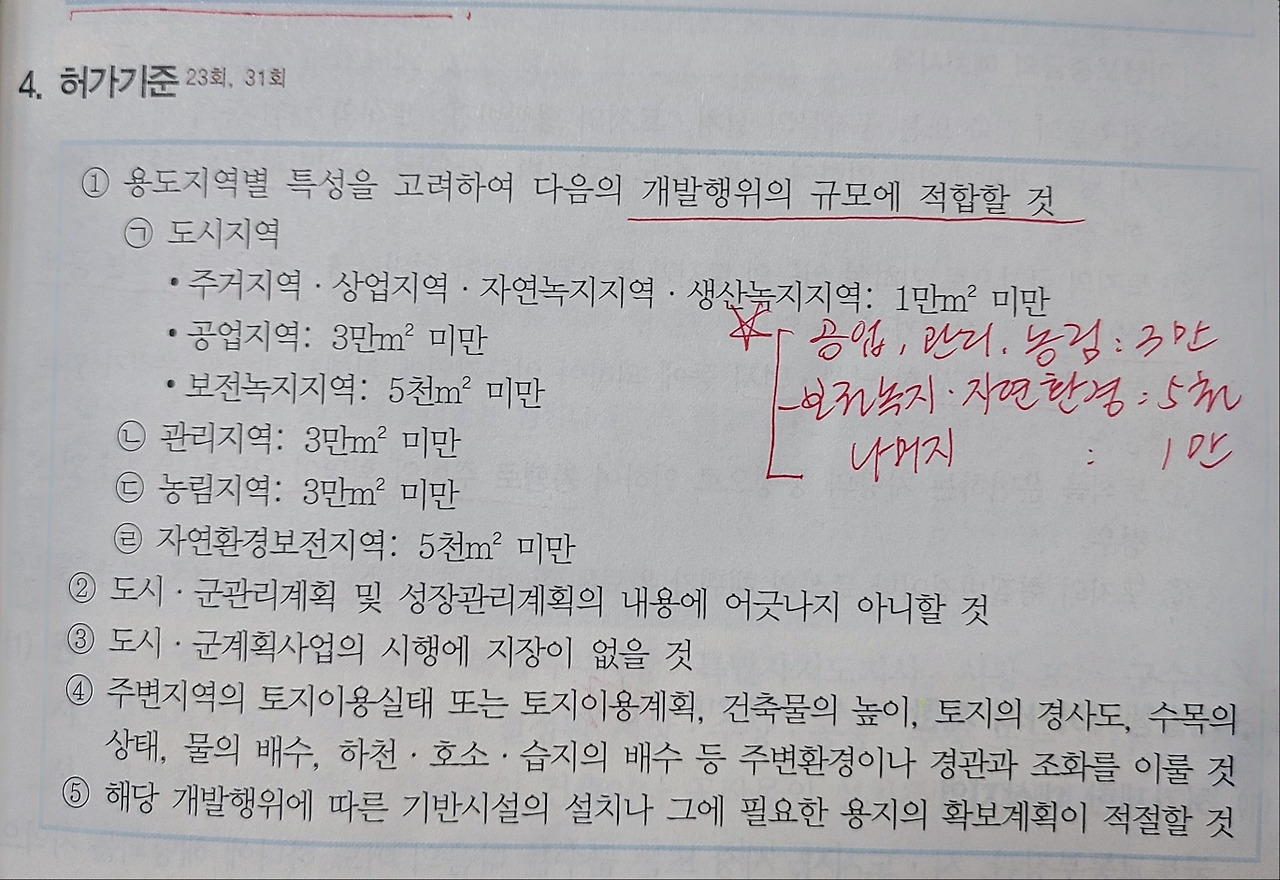 4. 허가기준 23회, 31회
① 용도지역별 특성을 고려하여 다음의 개발행위의 규모에 적합할 것
㉠ 도시지역
• 주거지역 · 상업지역 · 자연녹지지역 · 생산녹지지역: 1만m² 미만
• 공업지역: 3만m² 미만
공업, 관리, 농림 : 3만
• 보전녹지지역: 5천m² 미만
보전녹지 · 자연환경 : 5천
㉡ 관리지역: 3만m² 미만
나머지 : 1만
㉢ 농림지역: 3만m² 미만
㉣ 자연환경보전지역: 5천m² 미만
② 도시 · 군관리계획 및 성장관리계획의 내용에 어긋나지 아니할 것
③ 도시 · 군계획사업의 시행에 지장이 없을 것
④ 주변지역의 토지이용실태 또는 토지이용계획, 건축물의 높이, 토지의 경사도, 수목의
상태, 물의 배수, 하천 · 호소 · 습지의 배수 등 주변환경이나 경관과 조화를 이룰 것
⑤ 해당 개발행위에 따른 기반시설의 설치나 그에 필요한 용지의 확보계획이 적절할 것